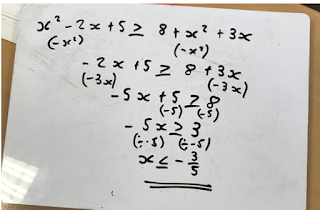 x² - 2x + 5 ≥ 8 + x² + 3x
(-x²) (-x²)
- 2x + 5 ≥ 8 + 3x
(-3x) (-3x)
-5x + 5 ≥ 8
(-5) (-5)
- 5x ≥ 3
(÷-5) (÷-5)
x ≤ - 3/5